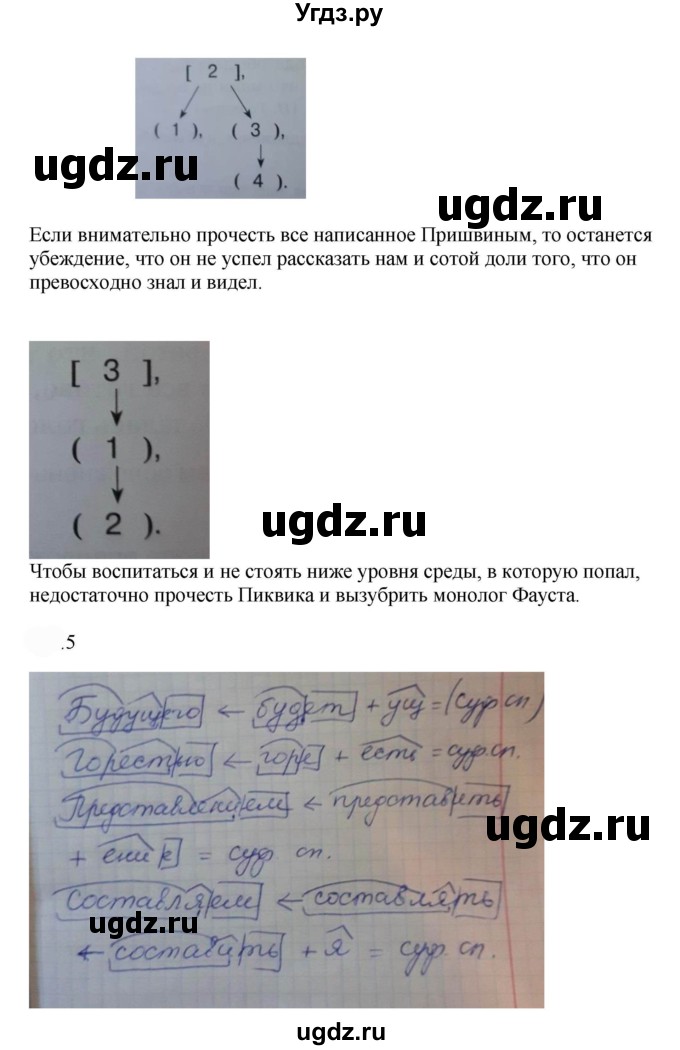 Угдз.ру
[ 2 ],
( 1 ), ( 3 ),
( 4 ).
ugdz.ru
ugdz.ru
Если внимательно прочесть все написанное Пришвиным, то останется
убеждение, что он не успел рассказать нам и сотой доли того, что он
превосходно знал и видел.
[ 3 ],
( 1 ),
( 2 ).
ugdz.ru
Чтобы воспитаться и не стоять ниже уровня среды, в которую попал,
недостаточно прочесть Пиквика и вызубрить монолог Фауста.
.5
Будущего ← будет + ущ = (суф сп)
Горестно ← горе + есть = суф.сп.
Представлением ← представить
ugdz.ru
+ ение = суф сп.
Составляем ← составлять
ugdz.ru
← составить + я = суф сп.
ugdz.ru